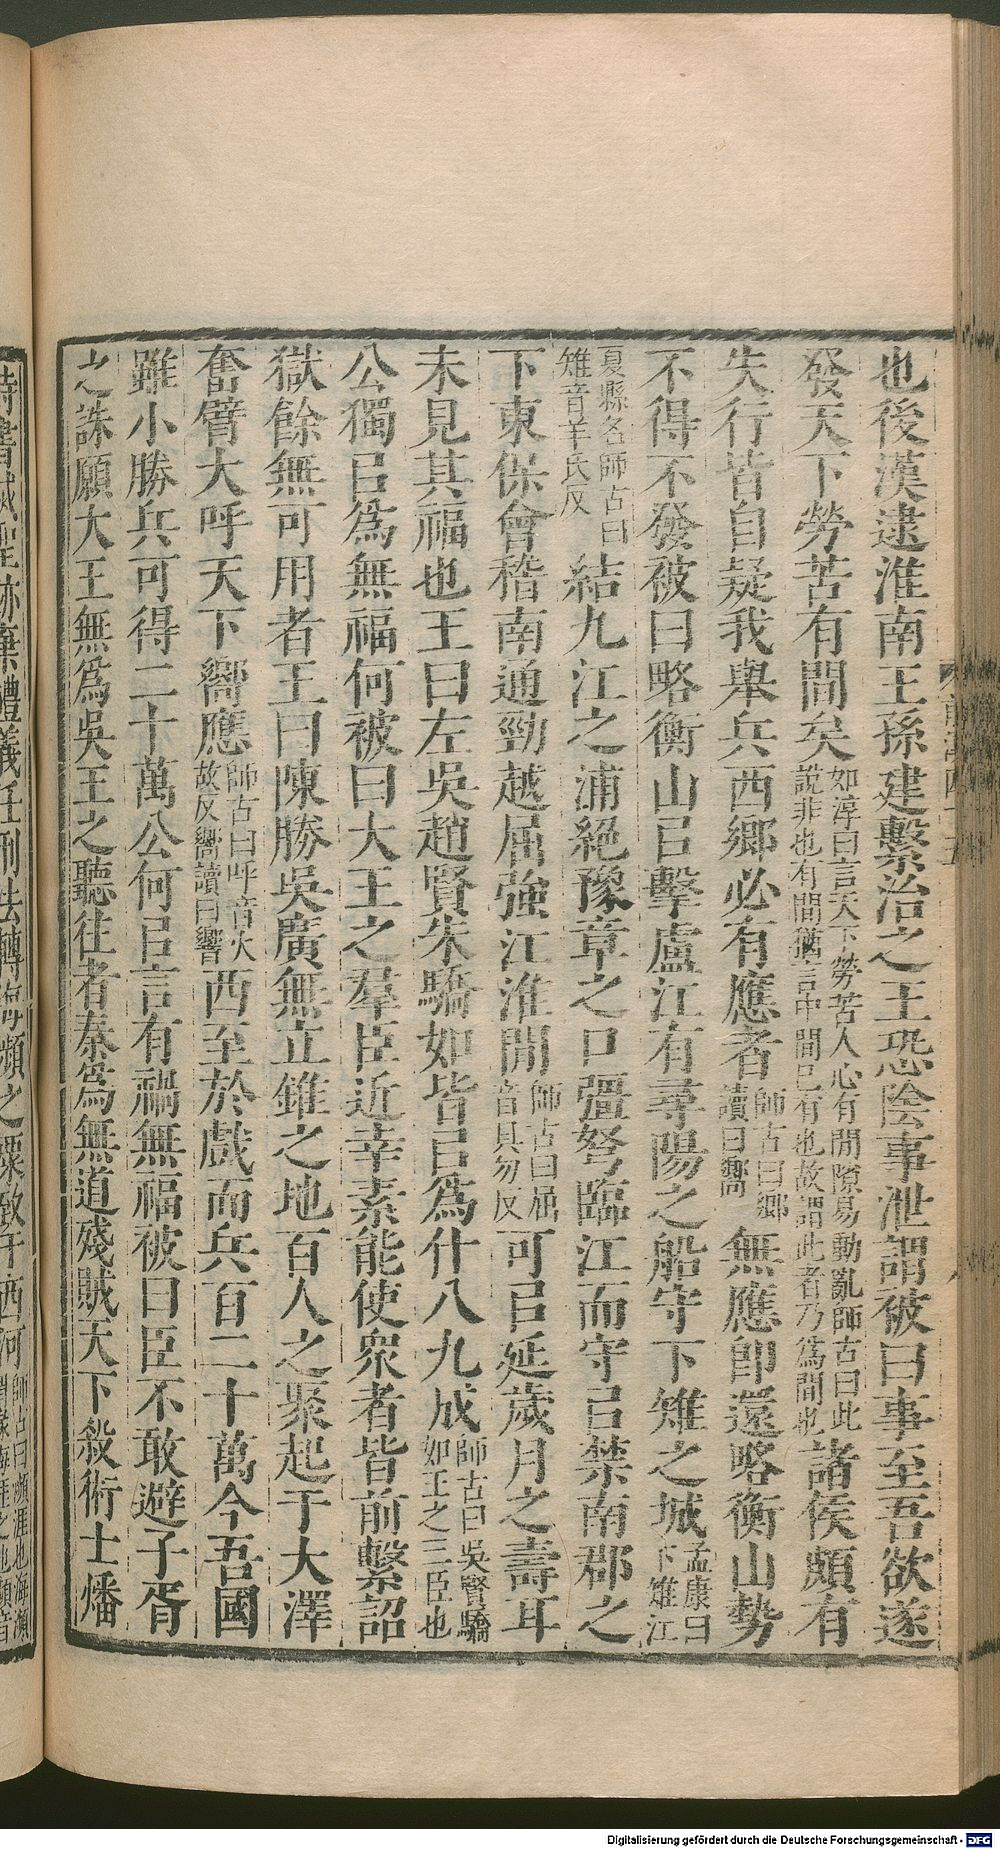 也後漢逮淮南王孫建繫治之王恐陰事泄謂被曰事至吾欲遂
發天下勞苦有間矣如淳曰言天下勞苦人心有閒隙易動亂師古曰此說非也有間猶言中間已有也故謂此者乃爲間也諸侯頗有
失行皆自疑我舉兵西鄉必有應者師古曰鄉讀曰嚮無應卽還略衡山勢
不得不發被曰略衡山㠯擊廬江有尋陽之船守下雉之城孟康曰下雉江
夏縣名師古曰雉音羊氏反結九江之浦絕豫章之口彊弩臨江而守㠯禁南郡之
下東保會稽南通勁越屈強江淮閒師古曰屈音具勿反可㠯延歲月之壽耳
未見其福也王曰左吳趙賢朱驕如皆㠯爲什八九成師古曰吳賢驕如王之三臣也
公獨㠯爲無福何被曰大王之羣臣近幸素能使衆者皆前繫詔
獄餘無可用者王曰陳勝吳廣無立錐之地百人之聚起于大澤
奮臂大呼天下嚮應師古曰呼音火故反嚮讀曰響西至於戲而兵百二十萬今吾國
雖小勝兵可得二十萬公何㠯言有禍無福被曰臣不敢避子胥
之誅願大王無爲吳王之聽往者秦爲無道殘賊天下殺術士燔
詩書滅聖跡棄禮義任刑法轉海瀕之粟致于西河師古曰瀕涯也海瀕
Digitalisierung gefördert durch die Deutsche Forschungsgemeinschaft - DFG